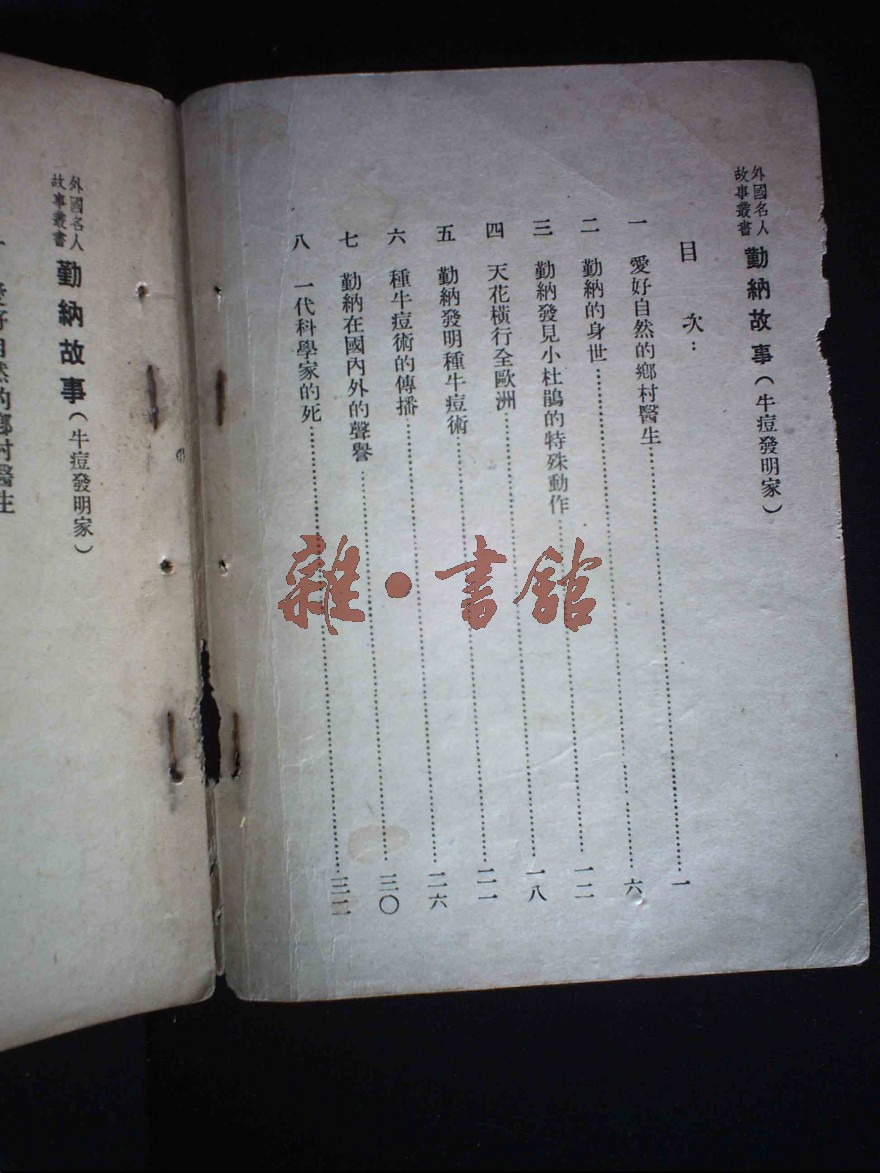 外國名人
故事叢書
勤納故事（牛痘發明家）
目次：
一 愛好自然的鄉村醫生……一
二 勤納的身世……六
三 勤納發見小杜鵑的特殊動作……一二
四 天花橫行全歐洲……一八
五 勤納發明種牛痘術……二一
六 種牛痘術的傳播……二六
七 勤納在國內外的聲譽……三〇
八 一代科學家的死……三二
外國名人
故事叢書
勤納故事（牛痘發明家）
一 愛好自然的鄉村醫生
雜·書館